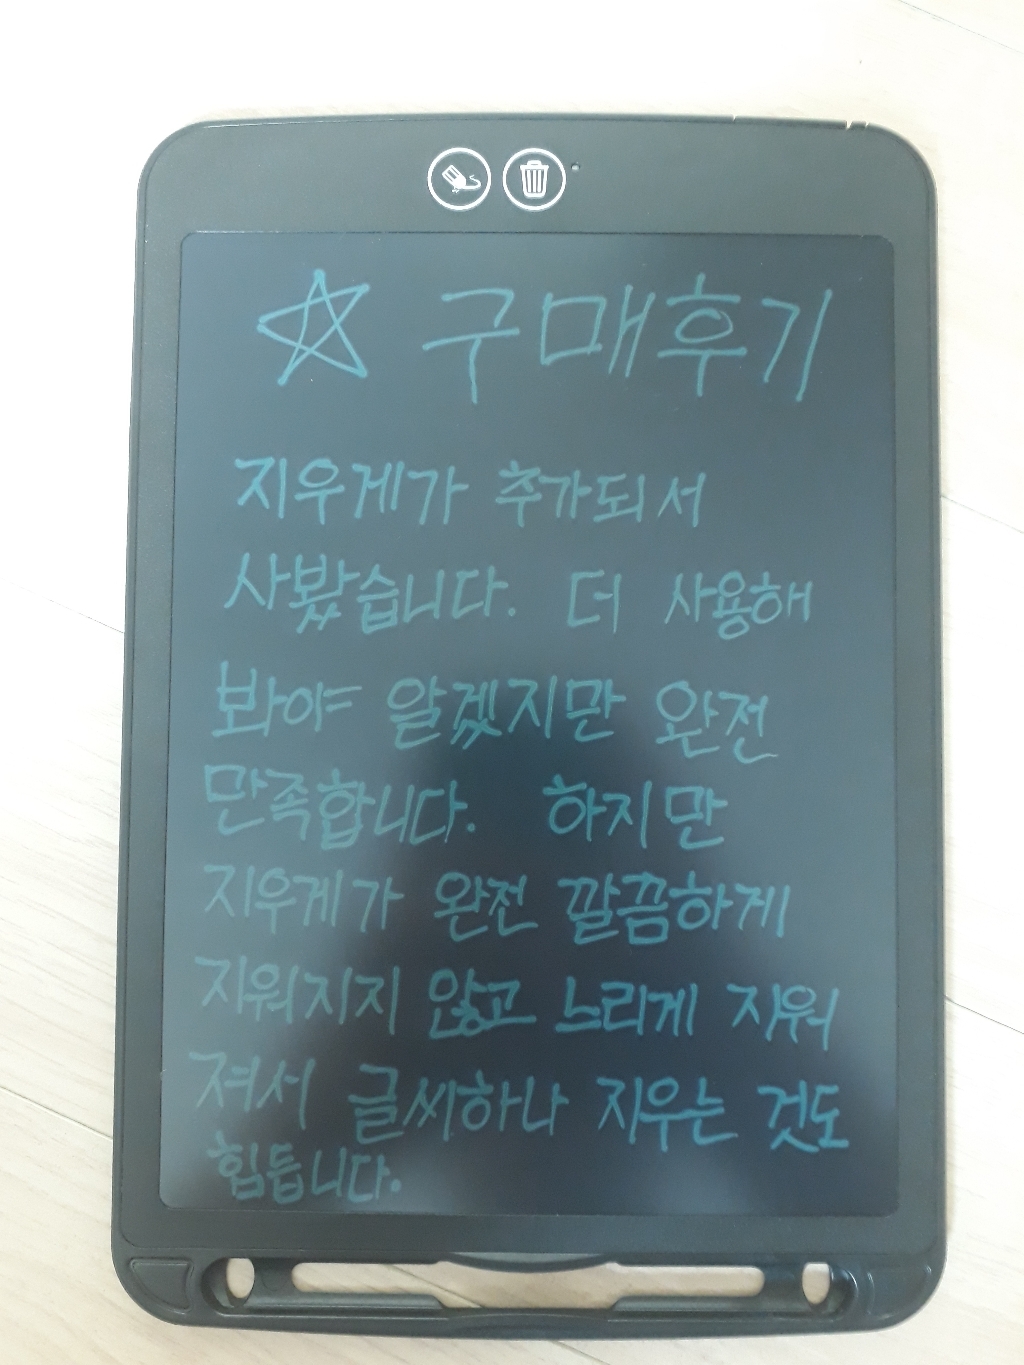 ☆ 구매후기
지우게가 추가되서
사봤습니다. 더 사용해
봐야 알겠지만 완전
만족합니다. 하지만
지우게가 완전 깔끔하게
지워지지 않고 느리게 지워
져서 글씨하나 지우는 것도
힘듭니다.